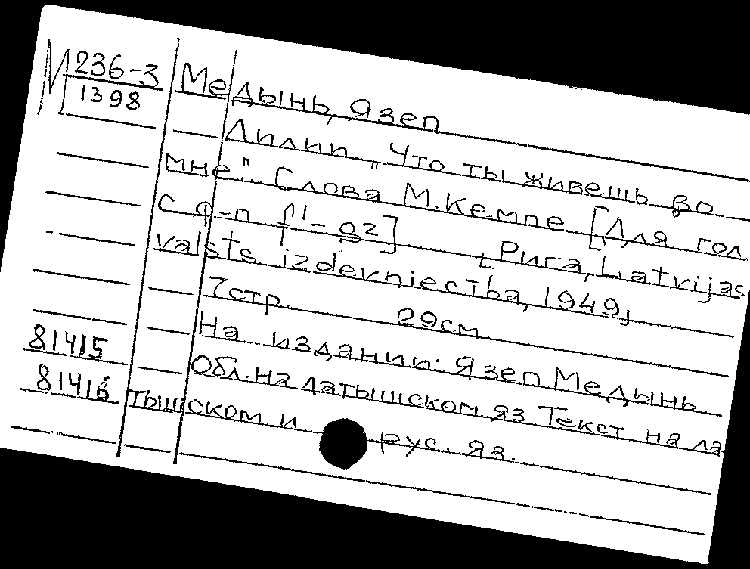 М 236-3
1398
Медынь, Язеп
Лилии „Что ты живешь во
мне". Слова М. Кемпе [Для гол
с ф-п f¹-g²] [Рига, Latvijas
valsts izdevniecība, 1949]
7стр. 29см
На издании: Язеп Медынь
Обл. на латышском яз Текст на ла
тышском и рус. яз.
81415
81416